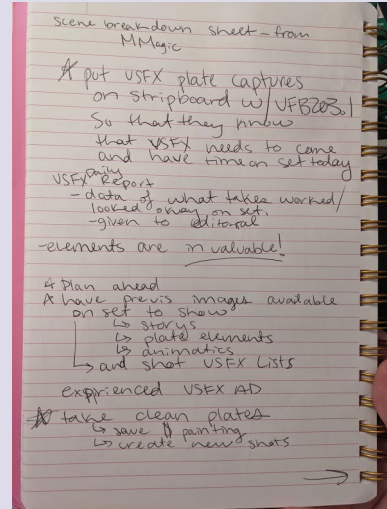 scene breakdown sheet - from
MMagic
☆ put VSFX plate captures
on stripboard w/ VFB203.1
So that they know
that VSFX needs to come
and have time on set today
VSFX Daily Report
- data of what takes worked/
looked okay on set.
- given to editorial
- elements are invaluable!
☆ Plan ahead
☆ have previs images available
on set to show
↳ storys
↳ plate elements
↳ animatics
↳ and shot VSFX Lists
exprienced VSFX AD
☆ take clean plates
↳ save $ painting
↳ create new shots
→